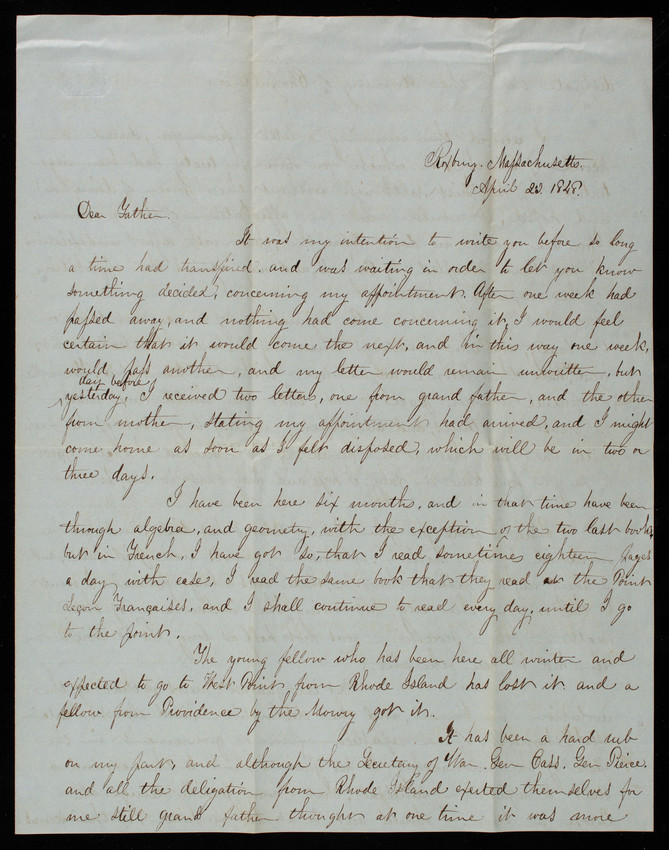 Roxbury. Massachusetts.
April 23. 1848.
Dear Father.
It was my intention to write you before so long
a time had transpired. and was waiting in order to let you know
something decided, concerning my appointment. After one week had
passed away, and nothing had come concerning it, I would feel
certain that it would come the next, and in this way one week,
would pass another, and my letter would remain unwritten, but
day before
yesterday, I received two letters, one from grand father, and the other
from mother, stating my appointment had arrived, and I might
come home as soon as I felt disposed, which will be in two or
three days.
I have been here six months, and in that time have been
through algebra, and geometry, with the exception of the two last books,
but in French, I have got so, that I read sometimes eighteen pages
a day with ease, I read the same book that they read at the Point
Leçon Françaises, and I shall continue to read every day, until I go
to the point.
The young fellow who has been here all winter and
expected to go to West Point from Rhode Island has lost it and a
fellow from Providence by the Mowry got it.
It has been a hard rub
on my part, and although the Secutary of War. Gen Cass. Gen Pierce.
and all the deligation from Rhode Island exerted themselves for
me still grand father thought at one time it was more